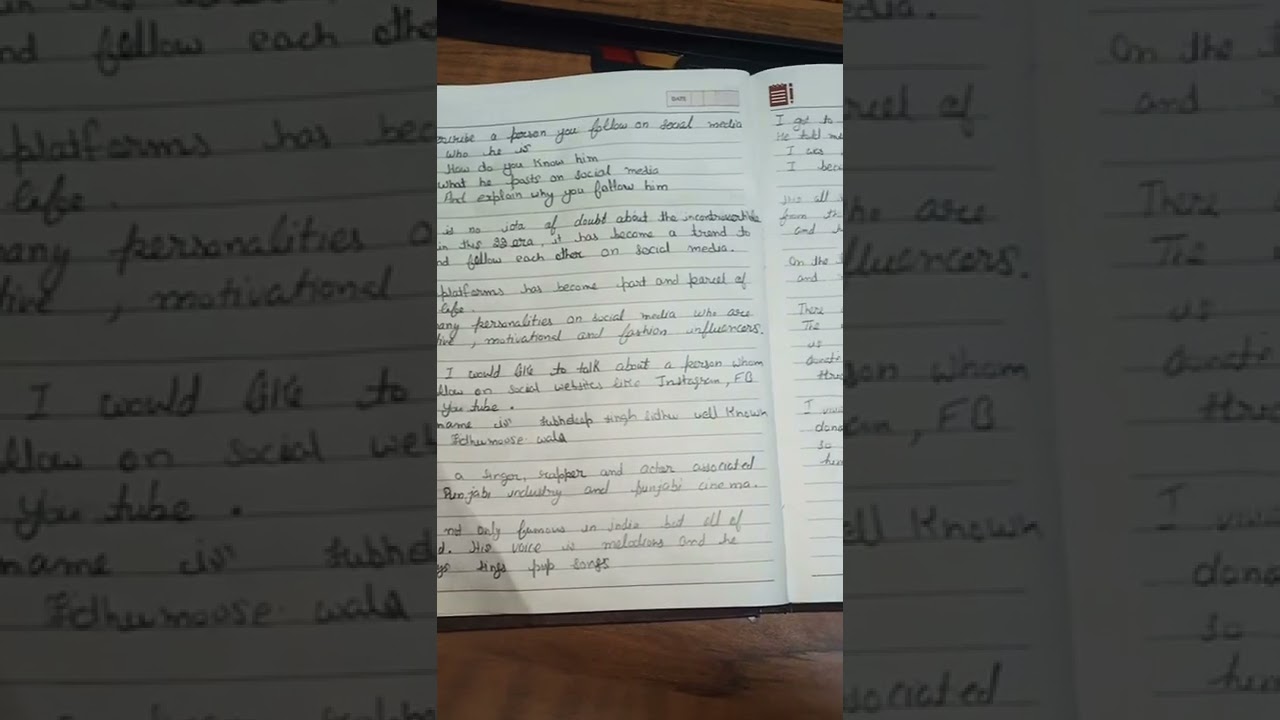 DATE
scribe a person you follow on social media
who he is
How do you know him
what he posts on social media
And explain why you follow him
is no iota of doubt about the incontrovertible
in this 22 era, it has become a trend to
nd follow each other on social media.
platforms has become part and parcel of
life.
any personalities on social media who are
tive, motivational and fashion influencers.
I would like to talk about a person whom
llow on social websites like Instagram, FB
You tube.
name is Subhdeep singh sidhu well Known
Sidhumoose wala
a singer, rapper and actor associated
Punjabi industry and punjabi cinema.
not only famous in india but all of
d. His voice is melodious and he
sings pop songs
I got to
He told me
I was
I beca
This all
from th
and h
On the
and
There
The
us
thro
I
dona
so
him